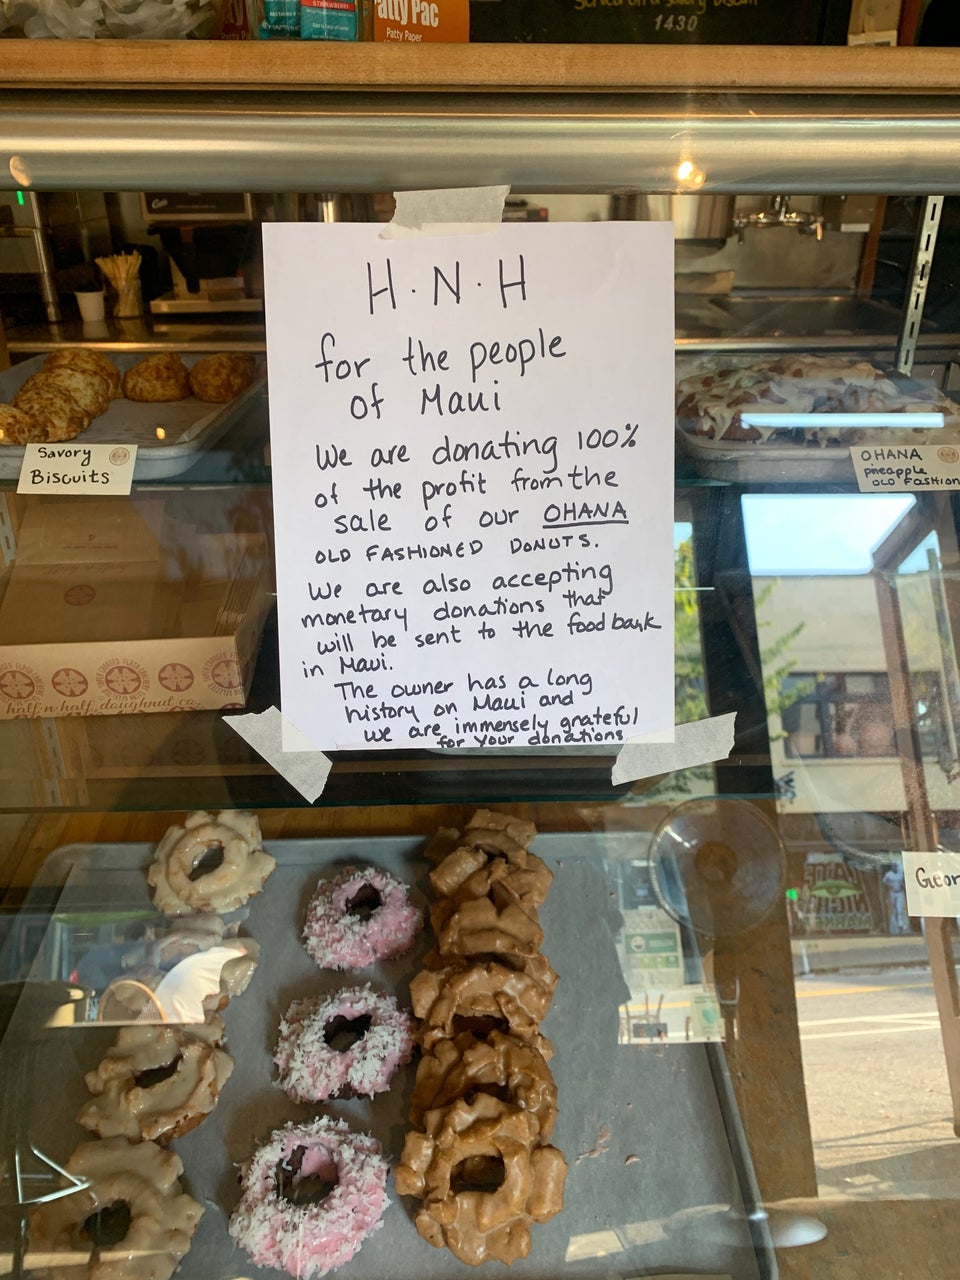 STRAWBERRY
Patty Pac
Patty Paper
1430
H·N·H
for the people
of Maui
We are donating 100%
of the profit from the
sale of our OHANA
OLD FASHIONED DONUTS.
We are also accepting
monetary donations that
will be sent to the food bank
in Maui.
The owner has a long
history on Maui and
we are immensely grateful
for your donations
Savory
Biscuits
OHANA
pineapple
OLD FASHION
half n half doughnut co.
Geor